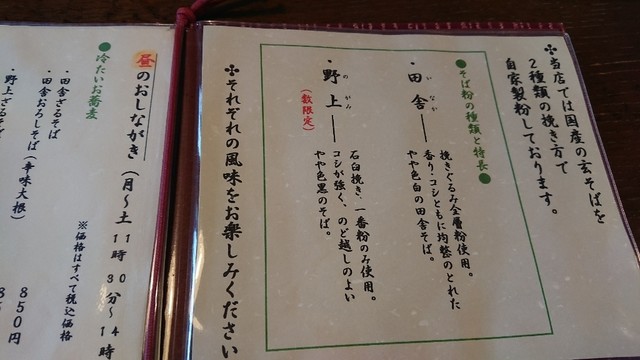 ❖当店では国産の玄そばを
２種類の挽き方で
自家製粉しております。
●そば粉の種類と特長●
・田舎
いなか
挽きぐるみ全層粉使用。
香り・コシともに均整のとれた
やや色白の田舎そば。
・野上
のがみ
（数限定）
石臼挽き、一番粉のみ使用。
コシが強く、のど越しのよい
やや色黒のそば。
❖それぞれの風味をお楽しみください
昼のおしながき（月〜土 11時30分〜14時
※価格はすべて税込価格
●冷たいお蕎麦
・田舎ざるそば
850円
・田舎おろしそば（辛味大根）
・野上ざるそば